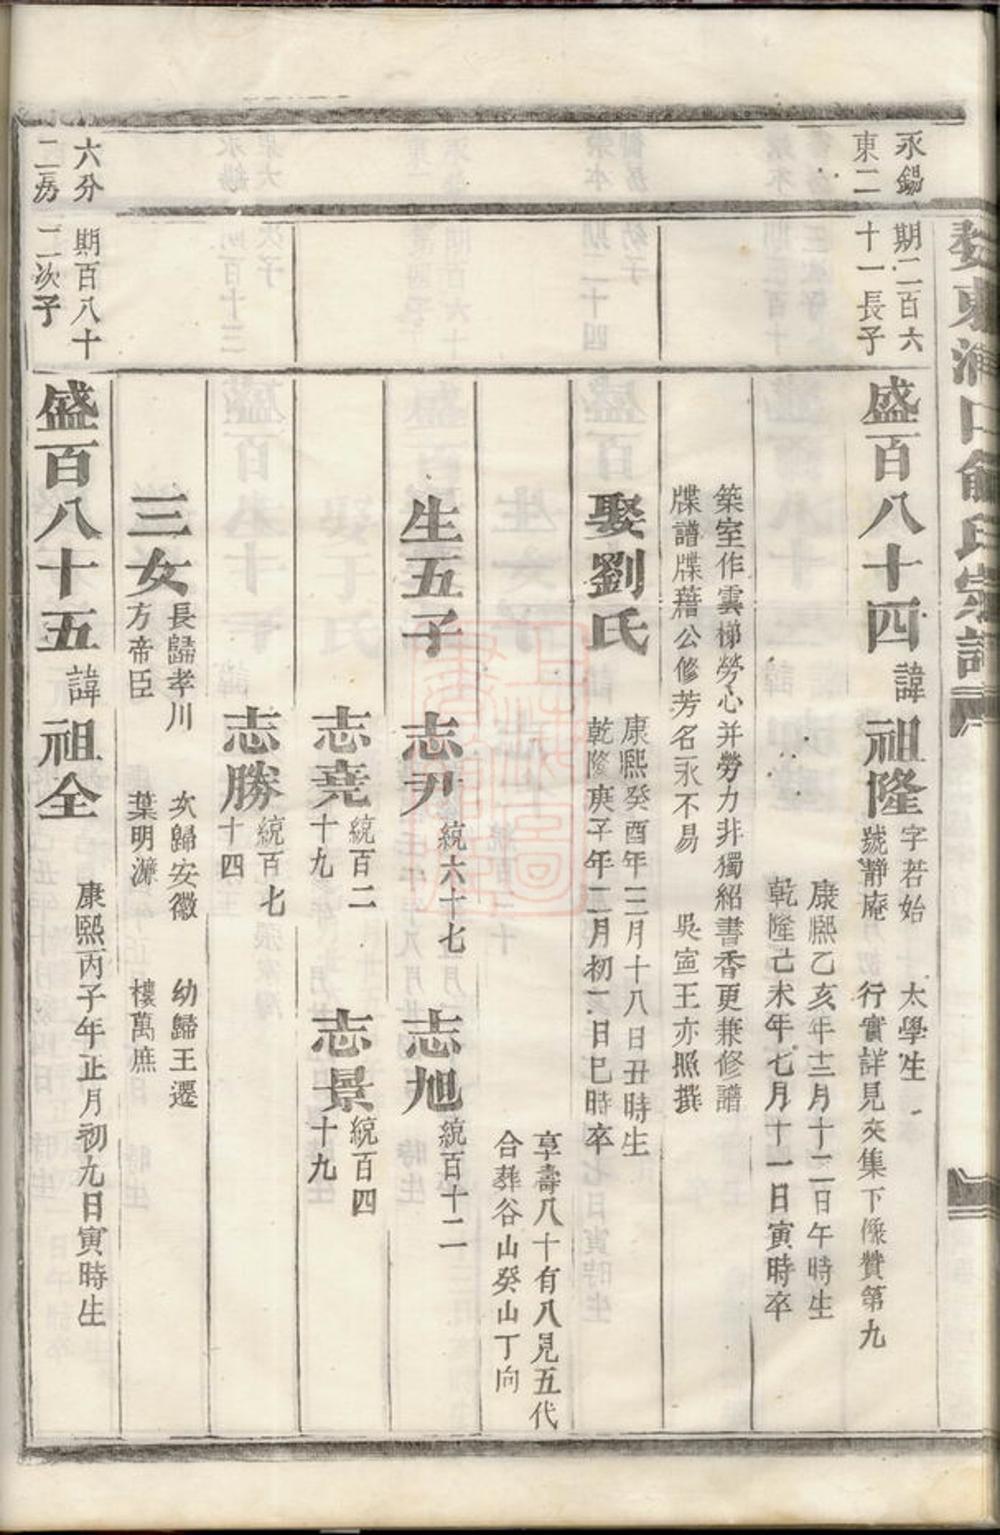 婺東湖口俞氏宗譜
永錫
東二
期二百六
十一長子
盛百八十四
諱
祖隆
字若始 太學生
號靜庵 行實詳見文集下像贊第九
康熙乙亥年十二月十二日午時生
乾隆己未年七月十一日寅時卒
築室作雲梯勞心并勞力非獨紹書香更兼修譜
牒譜牒藉公修芳名永不易 吳寧王亦照撰
娶劉氏
康熙癸酉年三月十八日丑時生
乾隆庚子年二月初二日巳時卒
享壽八十有八見五代
合葬谷山癸山丁向
生五子
志尹 統六十七
志旭 統百十二
志堯 統百二
十九
志景 統百四
十九
志勝 統百七
十四
三女
長歸孝川
方帝臣
次歸安徽
葉明濂
幼歸王遷
樓萬庶
六分
二房
期百八十
二次子
盛百八十五
諱
祖全
康熙丙子年正月初九日寅時生